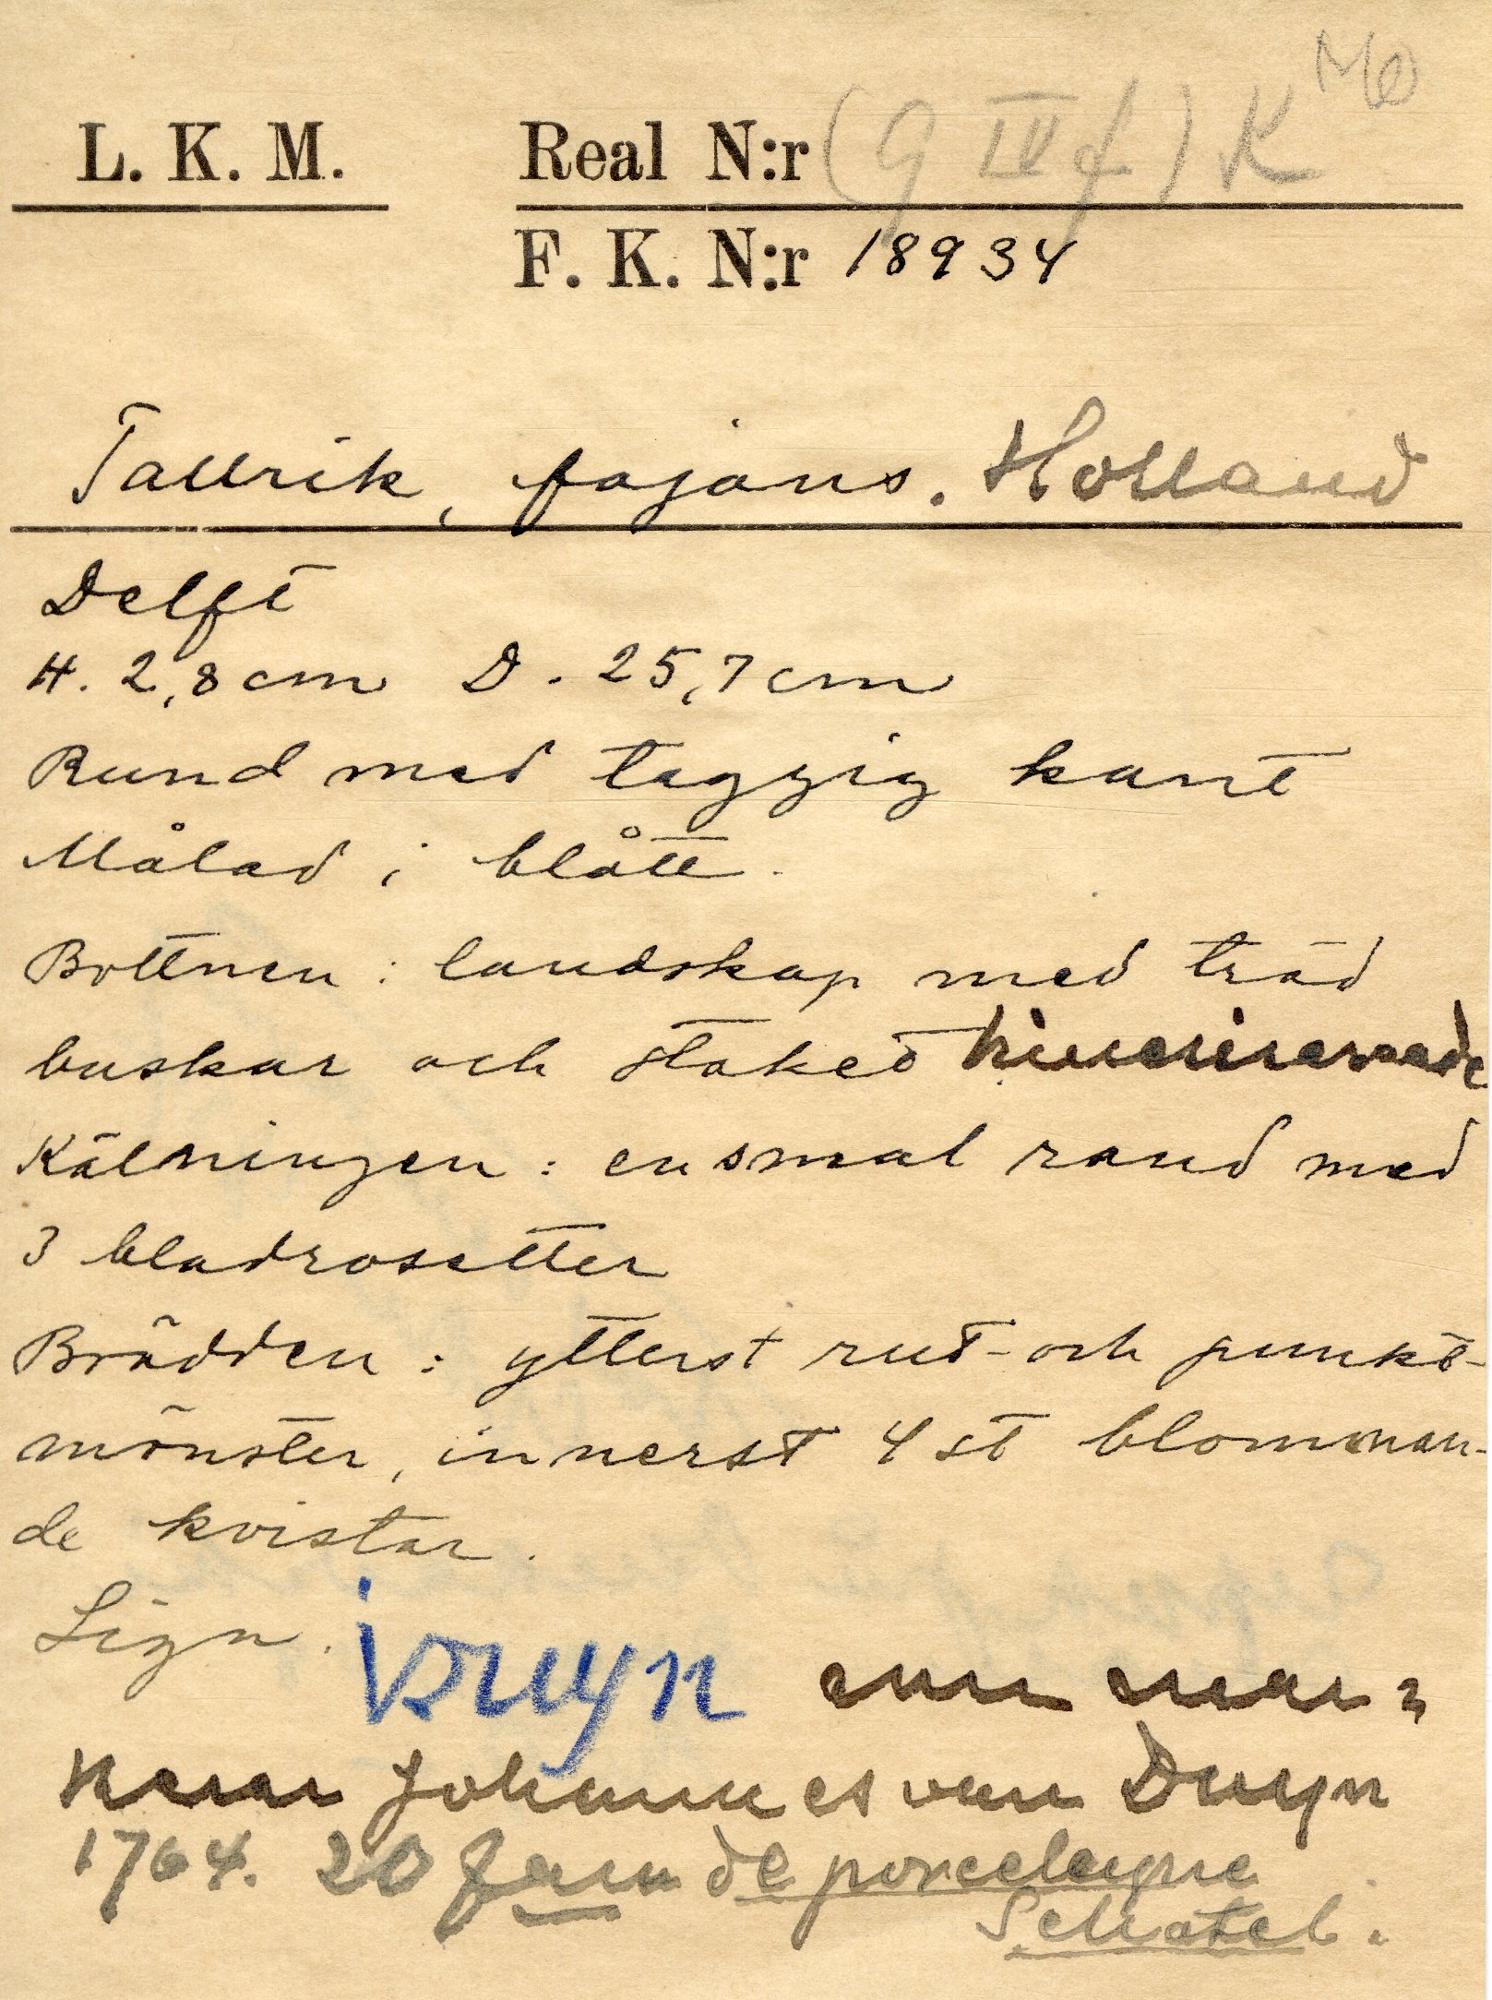 MO
L. K. M. Real N:r (G IV f) K
F. K. N:r 18934
Tallrik, fajans. Holland
Delft
H. 2,8 cm D. 25,7 cm
Rund med taggig kant
Målad i blått.
Bottnen: landskap med träd
buskar och staket kineserierande
Kälningen: en smal rand med
3 bladrosetter
Brädden: ytterst rut- och punkt-
mönster, innerst 4 st blomman-
de kvistar.
Sign. i Duyn
Johannes van Duyn
1764. 20 de porceleyne
Schotel.